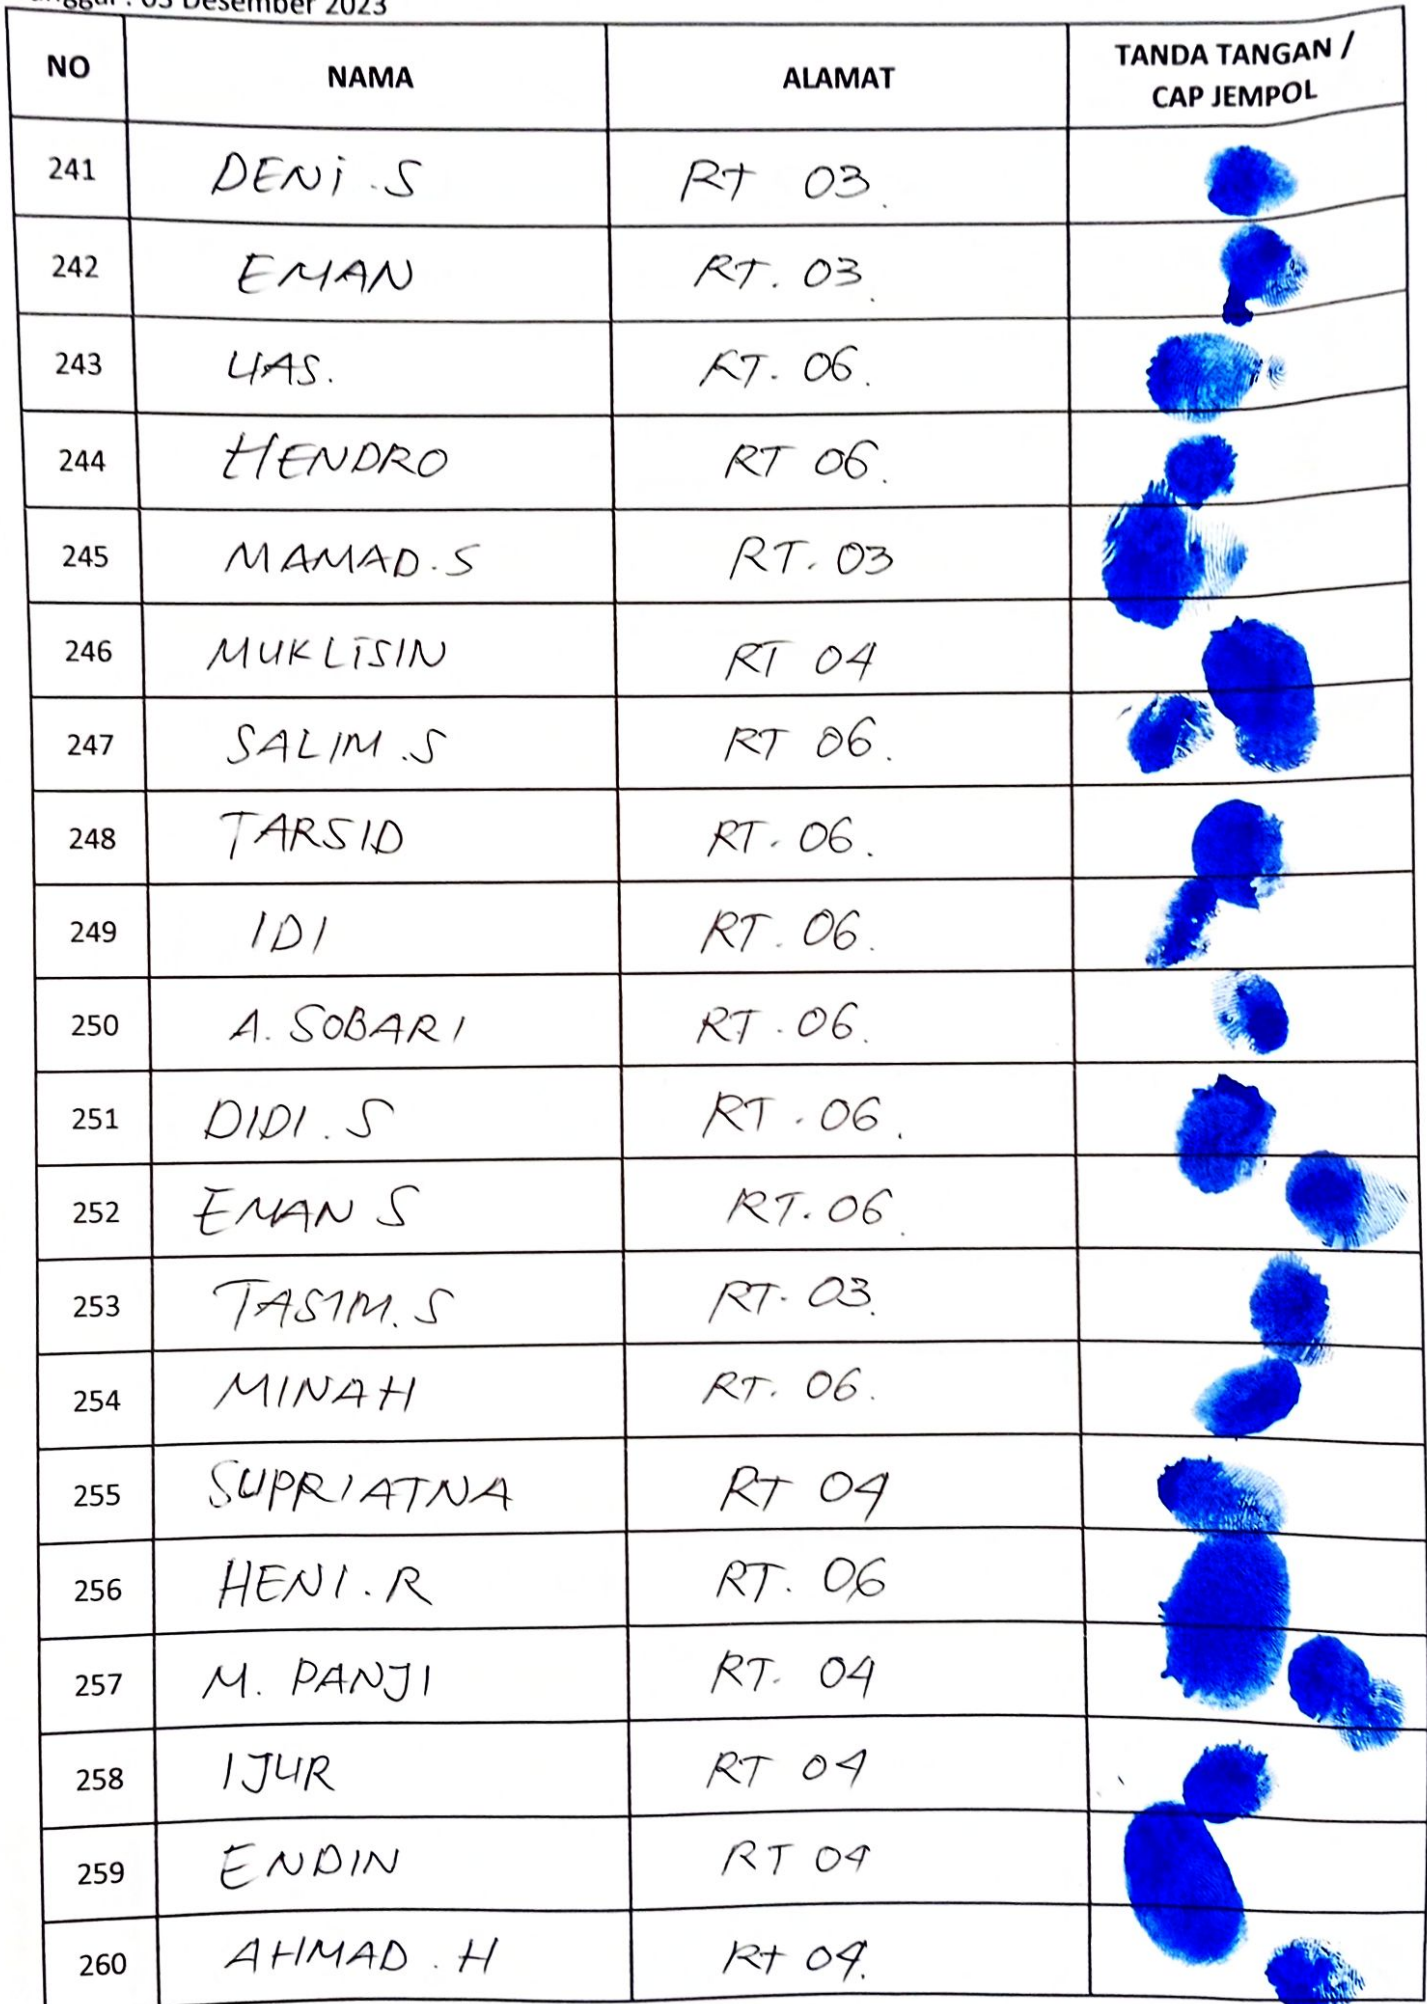 : 03 Desember 2023
NO NAMA ALAMAT TANDA TANGAN /
CAP JEMPOL
241 DENi.S Rt 03.
242 EMAN RT. 03.
243 UAS. RT. 06.
244 HENDRO RT 06.
245 MAMAD.S RT. 03
246 MUKLISIN RT 04
247 SALIM.S RT 06.
248 TARSID RT. 06.
249 IDI RT. 06.
250 A. SOBARI RT. 06.
251 DIDI. S RT. 06.
252 EMAN S RT. 06.
253 TASIM. S RT. 03.
254 MINAH RT. 06.
255 SUPRIATNA Rt 04
256 HENI. R RT. 06
257 M. PANJI RT. 04
258 IJUR RT 04
259 ENDIN RT 04
260 AHMAD. H Rt 04.